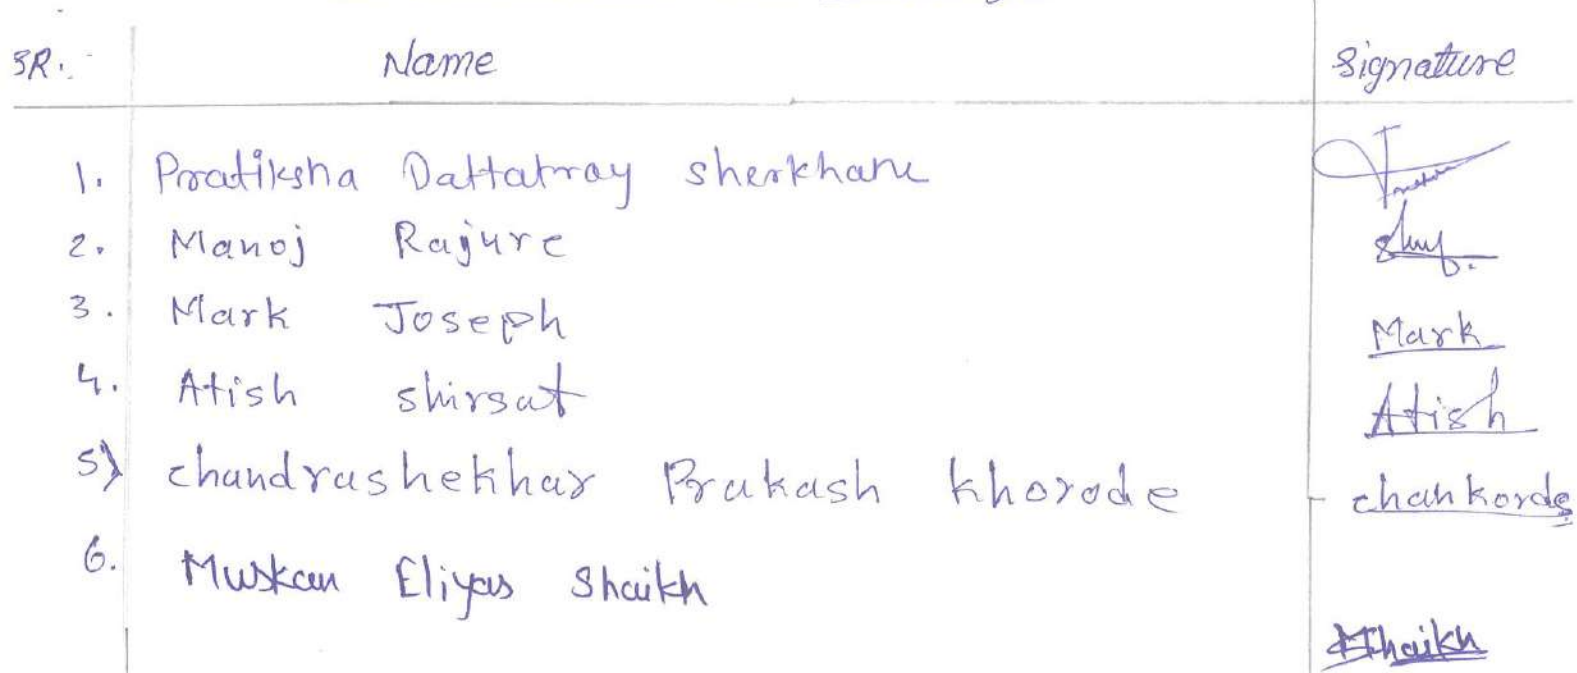 SR. Name Signature
1. Pratiksha Dattatray sherkhane
2. Manoj Rajure
3. Mark Joseph Mark
4. Atish shirsat Atish
5) chandrashekhar Prakash khorode - chankorde
6. Muskan Eliyas Shaikh